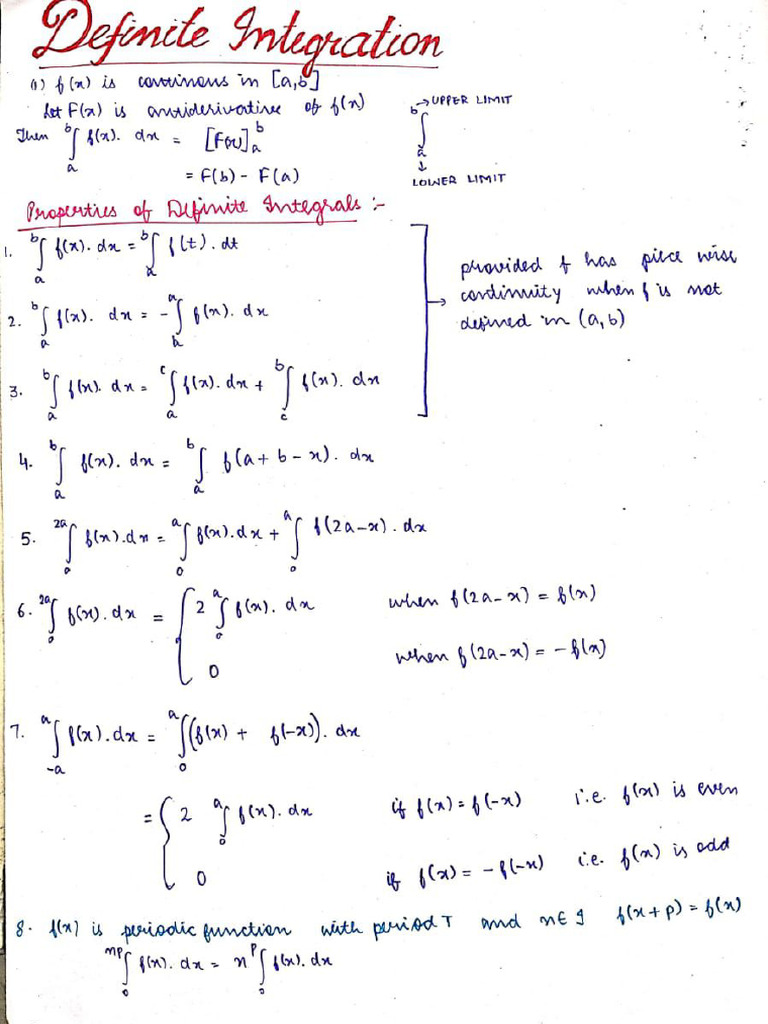 Definite Integration
(1) f(x) is continous in [a,b]
Let F(x) is antiderivative of f(x)
Then ᵇ∫ₐ f(x). dx = [F(x)]ₐᵇ
= F(b) - F(a)
b → UPPER LIMIT
∫
a
↓
LOWER LIMIT
Properties of Definite Integrals :-
1. ᵇ∫ₐ f(x). dx = ᵇ∫ₐ f(t). dt
2. ᵇ∫ₐ f(x). dx = - ᵃ∫_b f(x). dx
3. ᵇ∫ₐ f(x). dx = ᶜ∫ₐ f(x). dx + ᵇ∫_c f(x). dx
provided f has piece wise
continuity when f is not
defined in (a,b)
4. ᵇ∫ₐ f(x). dx = ᵇ∫ₐ f(a + b - x). dx
5. ²ᵃ∫₀ f(x).dx = ᵃ∫₀ f(x).dx + ᵃ∫₀ f(2a-x). dx
6. ²ᵃ∫₀ f(x). dx = { 2 ᵃ∫₀ f(x). dx when f(2a-x) = f(x)
0 when f(2a-x) = -f(x)
7. ᵃ∫₋ₐ f(x).dx = ᵃ∫₀ (f(x) + f(-x)). dx
= { 2 ᵃ∫₀ f(x). dx if f(x) = f(-x) i.e. f(x) is even
0 if f(x) = -f(-x) i.e. f(x) is odd
8. f(x) is periodic function with period T and n∈I f(x+p) = f(x)
ⁿᵖ∫₀ f(x). dx = n ᵖ∫₀ f(x). dx